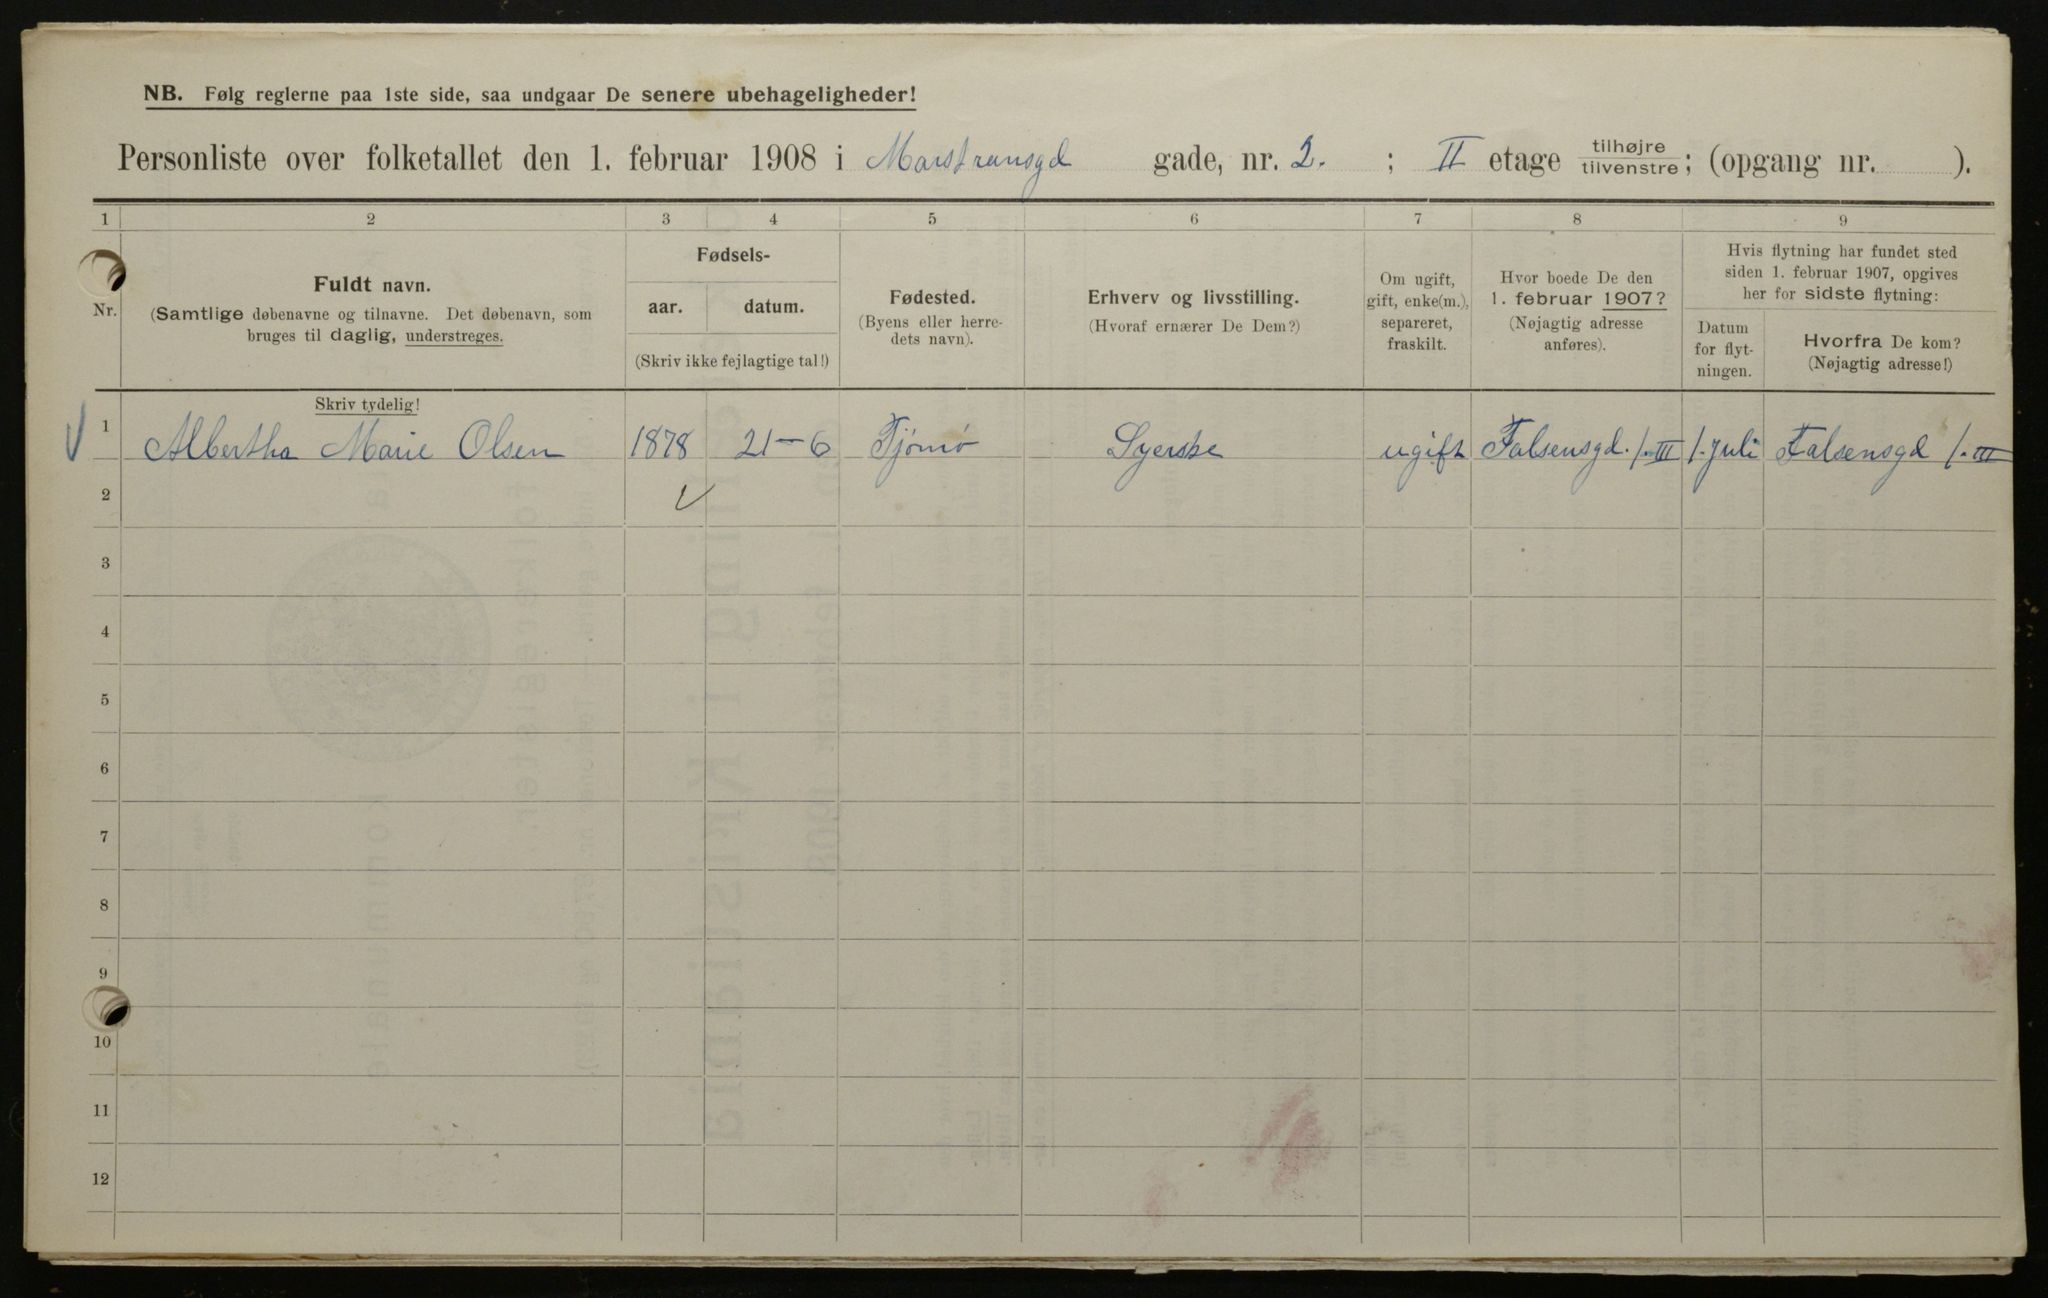 NB. Følg reglerne paa 1ste side, saa undgaar De senere ubehageligheder!
Personliste over folketallet den 1. februar 1908 i Marstransgd gade, nr. 2. ; II etage tilhøjre tilvenstre; (opgang nr. ).
1 2 3 4 5 6 7 8 9
Nr.
Fuldt navn.
(Samtlige døbenavne og tilnavne. Det døbenavn, som
bruges til daglig, understreges.
Fødsels-
aar. datum.
(Skriv ikke fejlagtige tal!)
Fødested.
(Byens eller herre-
dets navn).
Erhverv og livsstilling.
(Hvoraf ernærer De Dem?)
Om ugift,
gift, enke(m.),
separeret,
fraskilt.
Hvor boede De den
1. februar 1907?
(Nøjagtig adresse
anføres).
Hvis flytning har fundet sted
siden 1. februar 1907, opgives
her for sidste flytning:
Datum
for flyt-
ningen.
Hvorfra De kom?
(Nøjagtig adresse!)
Skriv tydelig!
1 Albertha Marie Olsen 1878 21-6 Tjømø Syerske ugift Falsensgd. 1. III 1. juli Falsensgd 1. III
2
3
4
5
6
7
8
9
10
11
12